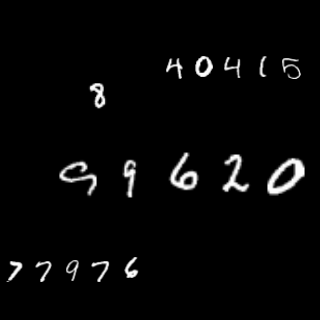 40415
8
99620
77976